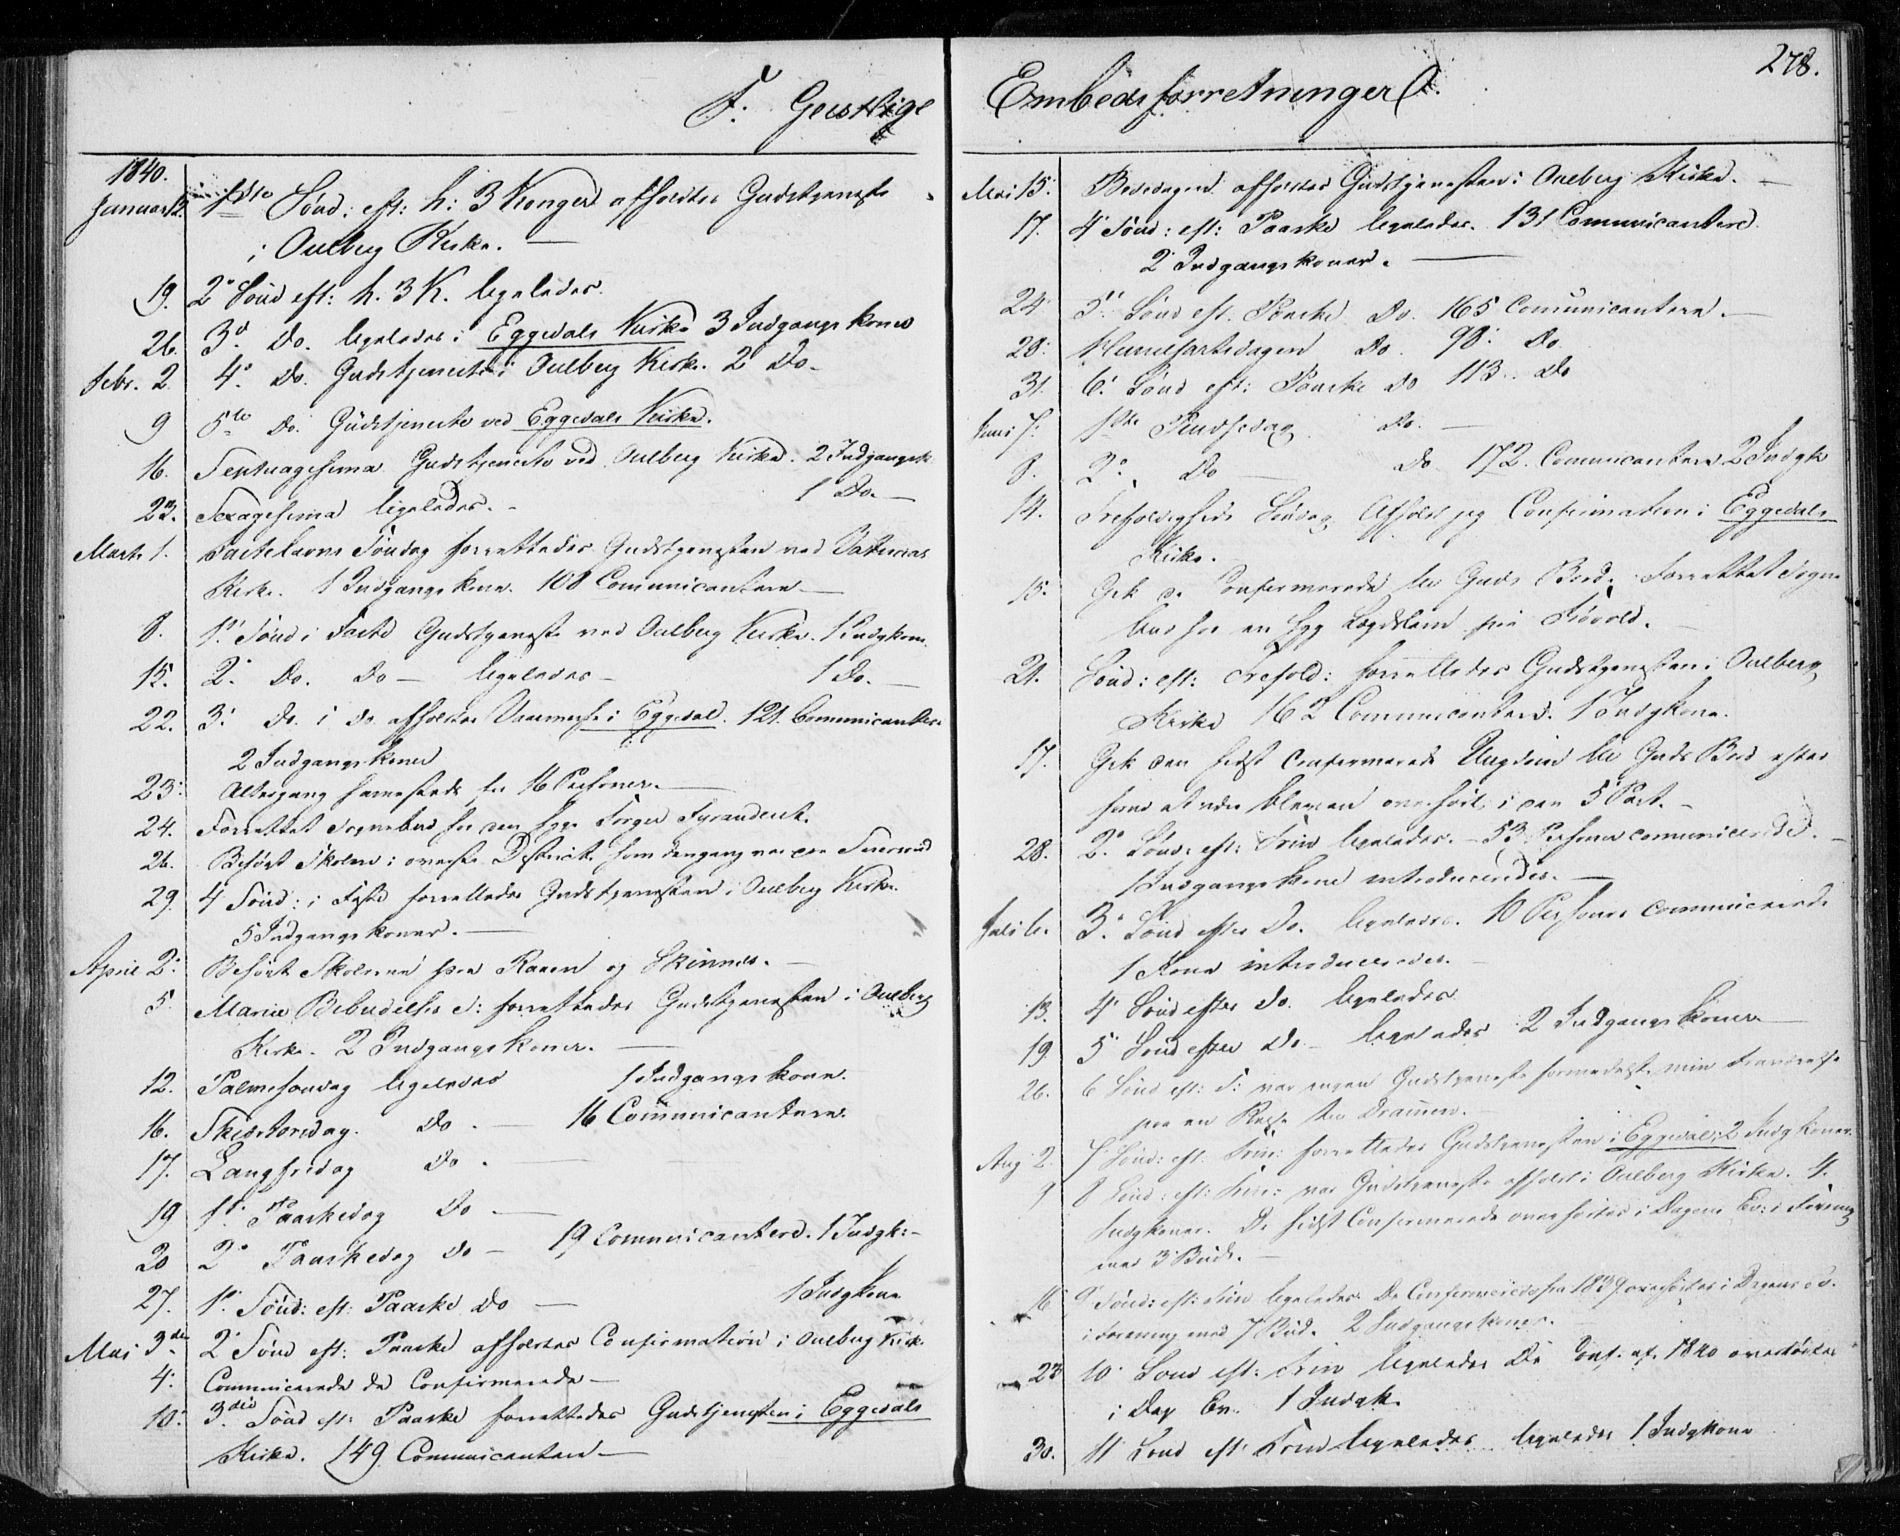 278.
F. Geistlige Embedsforretninger.
1840.
Januar 12. 1ste Sønd: eft: h: 3 Konger afholdtes Gudstjeneste
i Oulberg Kirke. —
19. 2' Sønd eft: h. 3 K. ligeledes.
26. 3' Do. ligeledes i Eggedals Kirke 3 Indgangskoner
Febr. 2. 4' Do. Gudstjeneste i Oulberg Kirke. 2 Do.
9 5te Do. Gudstjeneste ved Eggedals Kirke.
16. Septuagesima Gudstjeneste ved Oulberg Kirke. 2 Indgangsk
23. Sexagesima ligeledes. 1 Do. —
Marts 1. Fastelavns Søndag forrettedes Gudstjenesten ved
Kirke. 1 Indgangskone. 108 Communicantere —
8. 1' Sønd i Faste Gudstjeneste ved Oulberg Kirke. 1 Indgkone.
15. 2' Do. Do — ligeledes — 1 Do. —
22. 3' Do. i Do. afholdtes i Eggedal. 121 Communicantere
2 Indgangskoner
23. Altergang sammesteds for 16 Personer. —
24. Forrettet Sognebud for den syge
26. Besøgt Skolen i øverste District som dengang var paa
29. 4 Sønd: i Faste forrettedes Gudstjenesten i Oulberg Kirke.
5 Indgangskoner. —
April 2. Besøgt Skolerne paa Raaen og Skinnes. —
5. Mariæ Bebudelses D: forrettedes Gudstjenesten i Oulberg
Kirke. 2 Indgangskoner. —
12. Palmesøndag ligeledes 1 Indgangskone.
16. Skiærtorsdag. Do. — 16 Communicantere.
17. Langfredag Do. —
19 1' Paaskedag Do —
20 2' Paaskedag Do — 19 Communicantere. 1 Indgk: —
27. 1' Sønd: eft: Paaske Do — 1 Indgkone
Mai 3die 2' Sønd eft: Paaske afholdtes Confirmation i Oulberg Kirke
4. Communicerede de Confirmerede —
10. 3die Sønd eft: Paaske forrettedes Gudstjenesten i Eggedals
Kirke. 149 Communicantere —
Mai 15. Bededagen afholdtes Gudstjenesten i Oulberg Kirke. —
17. 4' Sønd: eft: Paaske ligeledes. 131 Communicantere
2 Indgangskoner. —
24 5' Sønd eft. Paaske Do. 165 Comunicantere. —
28. Himelfartsdagen Do. 98. Do
31. 6' Sønd eft: Paaske Do 113. Do
Juni 7. 1ste Pindsedag Do. —
8. 2' Do — Do 172. Comunicantere 2 Indgk
14. Trefoldigheds Søndag Afholdt jeg Confirmation i Eggedals
Kirke. —
15. Gik de Confirmerede til Guds Bord. Forrettet Sogne
bud for en syg Lægdslem paa
21. Sønd: eft: Trefold: forrettedes Gudstjenesten i Oulberg
Kirke 162 Communicantere. 1 Indgkone.
17. Gik den sidst confirmerede Ungdom til Guds Bord efter
først at være bleven overhørt i den 5' Part. —
28. 2' Sønd: eft: Trin ligeledes. — 53 Personer comunicerede. —
1 Indgangskone introduceredes. —
Juli 3' Sønd efter Do. ligeledes. 10 Personer communicerede
1 Kone introduceredes. —
13. 4' Sønd efter Do. ligeledes
19 5' Sønd efter Do — ligeledes 2 Indgangskoner —
26. 6 Sønd eft: T: var ingen Gudstjeneste formedelst min Fraværelse
paa en Rejse til Dramen. —
Aug 2. 7 Sønd: eft: Trin: forrettedes Gudstjenesten i Eggedal: 2 Indgkoner.
9 8 Sønd: eft: Trin: var Gudstjeneste afholdt i Oulberg Kirke. 4.
Indgkoner. De sidst Confirmerede overhørtes i Dagens Ev: i Forening
med 3' Bud. —
16 9' Sønd: eft: Trin ligeledes. De Confirmerede fra 1839 overhørtes i Dagens Ev.
i Forening med 7 Bud. 2 Indgangskoner. —
23 10' Sønd eft: Trin ligeledes De Conf. af 1840 overhørtes
i Dag Ev. 1 Indgk.
30. 11 Sønd eft Trin ligeledes ligeledes 1 Indgkone